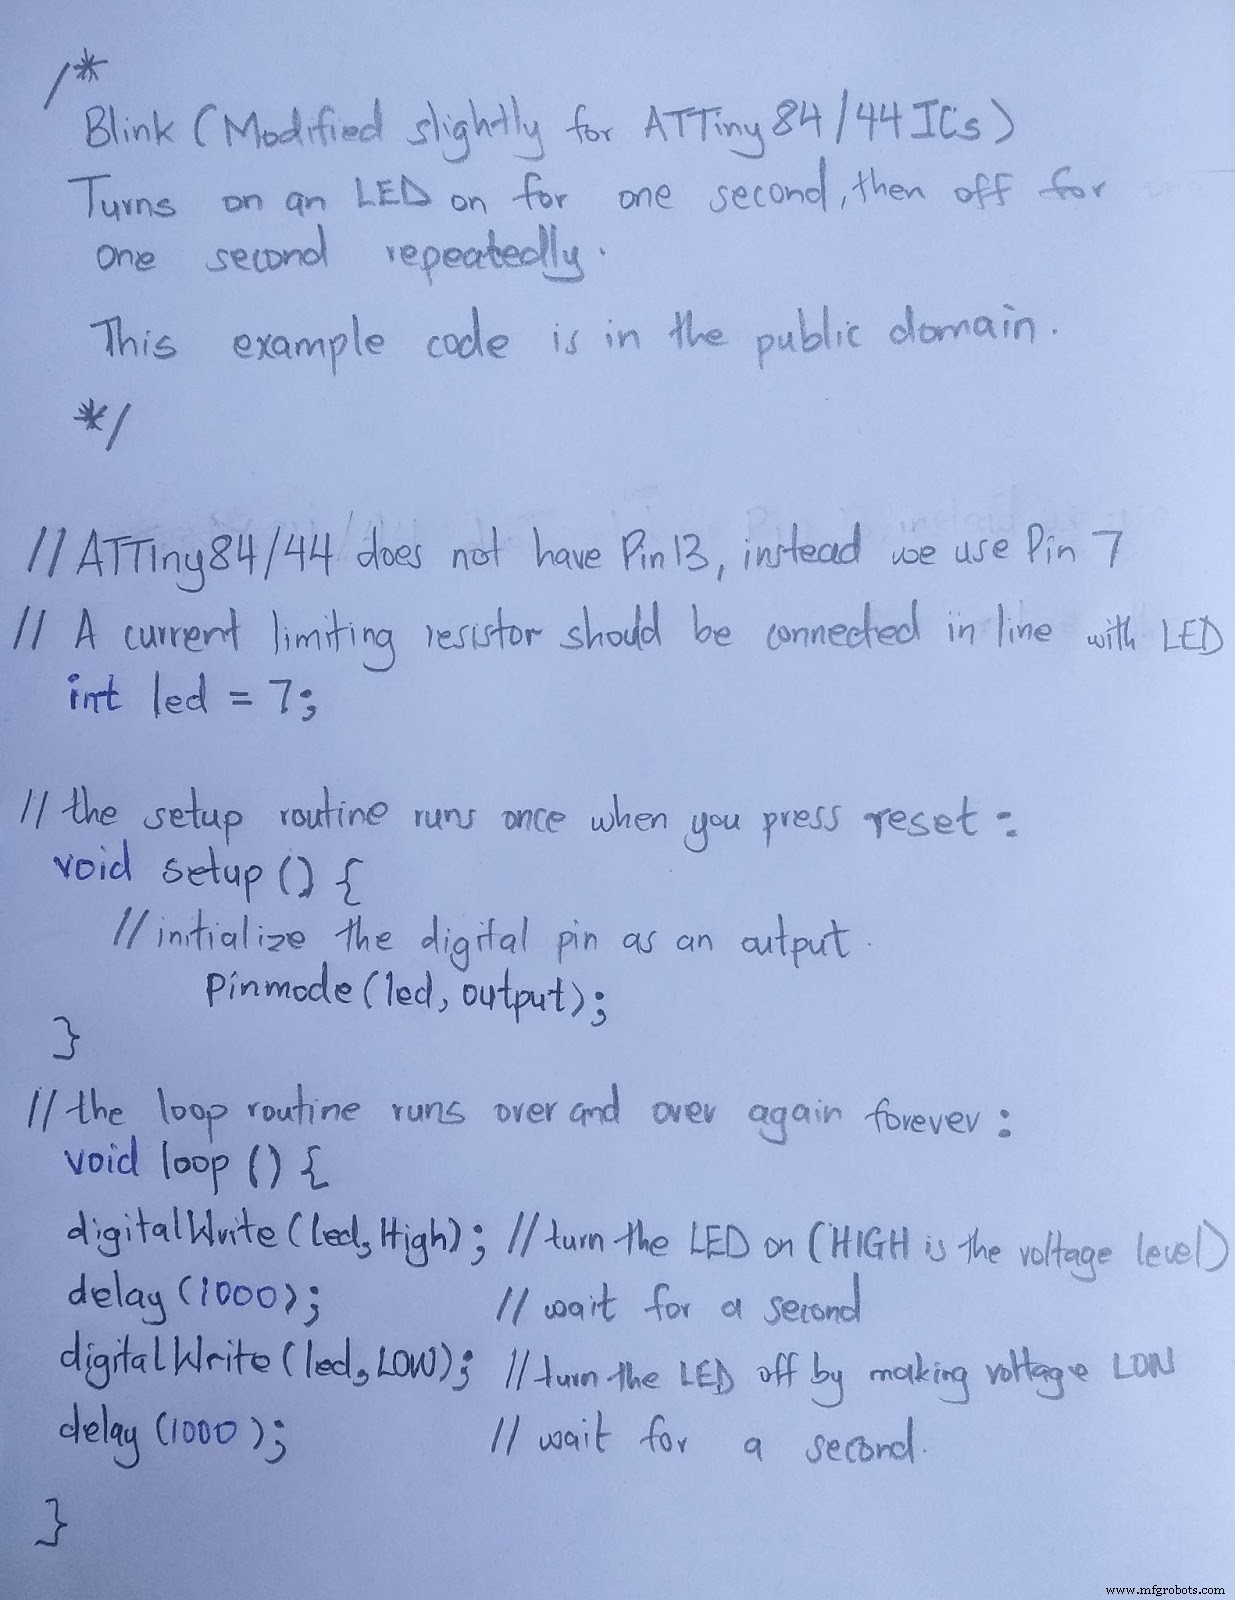 /*
Blink (Modified slightly for ATTiny84/44 ICs)
Turns on an LED on for one second, then off for
one second repeatedly.
This example code is in the public domain.
*/
// ATTiny84/44 does not have Pin 13, instead we use Pin 7
// A current limiting resistor should be connected in line with LED
int led = 7;
// the setup routine runs once when you press reset:
void setup () {
// initialize the digital pin as an output.
Pinmode (led, output);
}
// the loop routine runs over and over again forever:
void loop () {
digitalWrite (led, High); // turn the LED on (HIGH is the voltage level)
delay (1000); // wait for a second
digitalWrite (led, LOW); // turn the LED off by making voltage LOW
delay (1000); // wait for a second.
}
www.mfgrobots.com